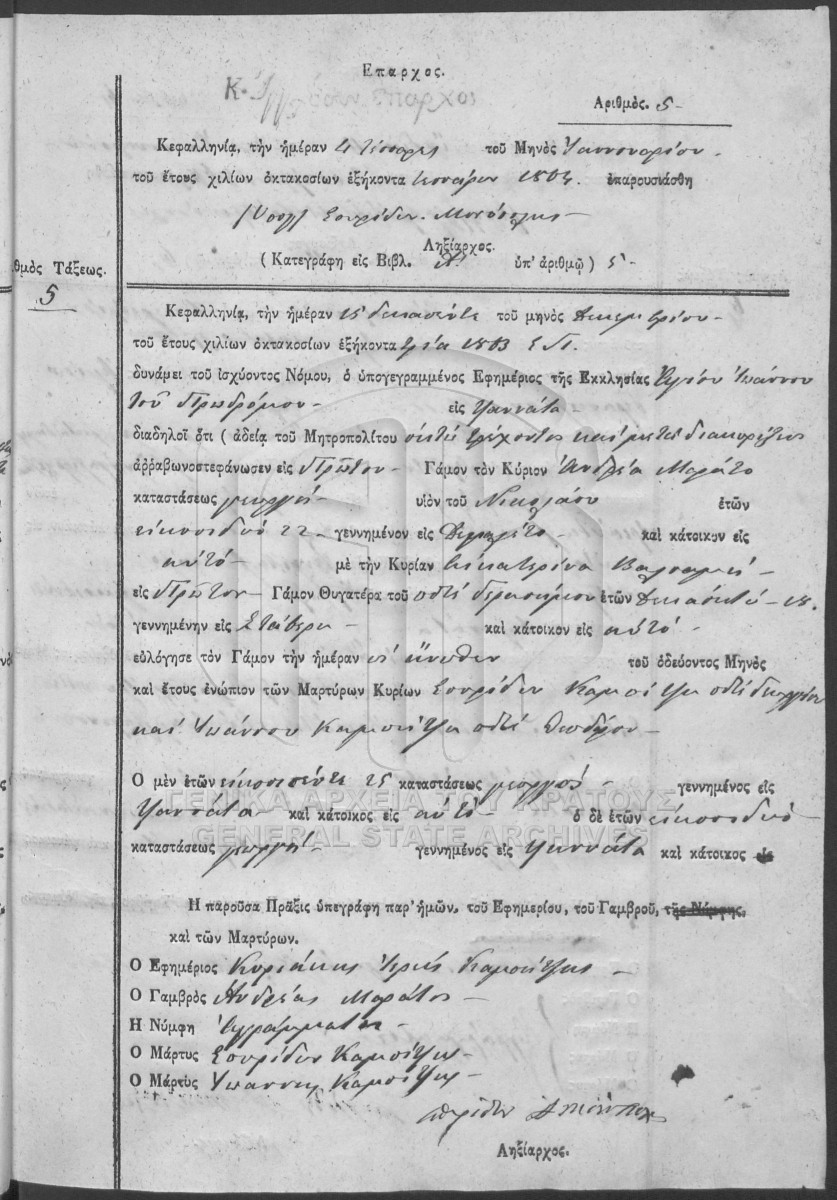 Επαρχος.
Κ. έπαρχος
Αριθμὸς. 5 -
Κεφαλληνίᾳ, τὴν ἡμέραν 4 τέσσαρες τοῦ Μηνὸς Ἰαννουαρίου -
τοῦ ἔτους χιλίων ὀκτακοσίων ἑξήκοντα τέσσαρα 1864. ἐπαρουσιάσθη
Σπυρίδων
Ληξίαρχος.
( Κατεγράφη εἰς Βιβλ. Α΄ ὑπ' ἀριθμῷ ) 5 -
ιθμὸς Τάξεως.
5
Κεφαλληνίᾳ, τὴν ἡμέραν 15 δεκαπέντε τοῦ μηνὸς Δεκεμβρίου -
τοῦ ἔτους χιλίων ὀκτακοσίων ἑξήκοντα τρία 1863 Ε.Π.
δυνάμει τοῦ ἰσχύοντος Νόμου, ὁ ὑπογεγραμμένος Ἐφημέριος τῆς Εκκλησίας Ἁγίου Ἰωάννου
τοῦ Προδρόμου - εἰς Γαννάτα
διαδηλοῖ ὅτι ( ἀδείᾳ τοῦ Μητροπολίτου ὀκτώ τρέχοντος καὶ μετά διακηρύξεις
ἀῤῥαβωνοστεφάνωσεν εἰς Πρῶτον - Γάμον τὸν Κύριον Ἀνδρέα Μαράτο
καταστάσεως γεωργός - υἱὸν τοῦ Νικολάου ἐτῶν
εικοσιδυό 22 - γεννημένον εἰς καὶ κάτοικον εἰς
αὐτό - μὲ τὴν Κυρίαν Εἰκατερίνα Βαλσαμή -
εἰς Πρῶτον - Γάμον Θυγατέρα τοῦ ποτέ Γερασίμου ἐτῶν δεκαοκτώ - 18.
γεννημένην εἰς καὶ κάτοικον εἰς αὐτό -
εὐλόγησε τὸν Γάμον τὴν ἡμέραν ὡς ἄνωθεν τοῦ ὁδεύοντος Μηνὸς
καὶ ἔτους ἐνώπιον τῶν Μαρτύρων Κυρίων Σπυρίδων Καμπίτζη ποτέ Γεωργίου
καὶ Ἰωάννου Καμπίτζη ποτέ Θεοδώρου -
Ο μὲν ἐτῶν εικοσιπέντε 25 καταστάσεως γεωργός - γεννημένος εἰς
Γαννάτα - καὶ κάτοικος εἰς αὐτό - ὁ δὲ ἐτῶν εικοσιδυό -
καταστάσεως γεωργός - γεννημένος εἰς Γαννάτα καὶ κάτοικος
ΓΕΝΙΚΑ ΑΡΧΕΙΑ ΤΟΥ ΚΡΑΤΟΥΣ
GENERAL STATE ARCHIVES
Η παροῦσα Πρᾶξις ὑπεγράφη παρ' ἡμῶν, τοῦ Ἐφημερίου, τοῦ Γαμβροῦ, τῆς Νύμφης,
καὶ τῶν Μαρτύρων.
Ο Ἐφημέριος Κυριάκης Ἱερεύς Καμπίτζης -
Ο Γαμβρὸς Ἀνδρέας Μαράτος -
Η Νύμφη Ἀγράμματη -
Ο Μάρτυς Σπυρίδων Καμπίτζης -
Ο Μάρτυς Ἰωάννης Καμπίτζης -
Ληξίαρχος.